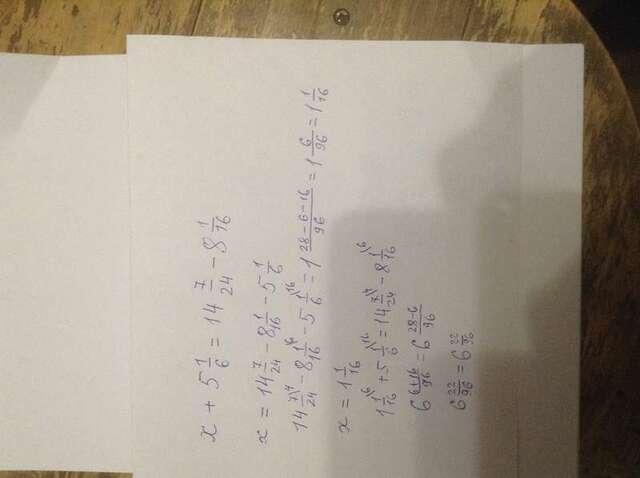 x + 5 1/6 = 14 7/24 - 8 1/16
x = 14 7/24 - 8 1/16 - 5 1/6
14 7\4/24 - 8 1\6/16 - 5 1\16/6 = 1 28-6-16/96 = 1 6/96 = 1 1/16
x = 1 1/16
1 1\6/16 + 5 1\16/6 = 14 7\4/24 - 8 1\6/16
6 6+16/96 = 6 28-6/96
6 22/96 = 6 22/96